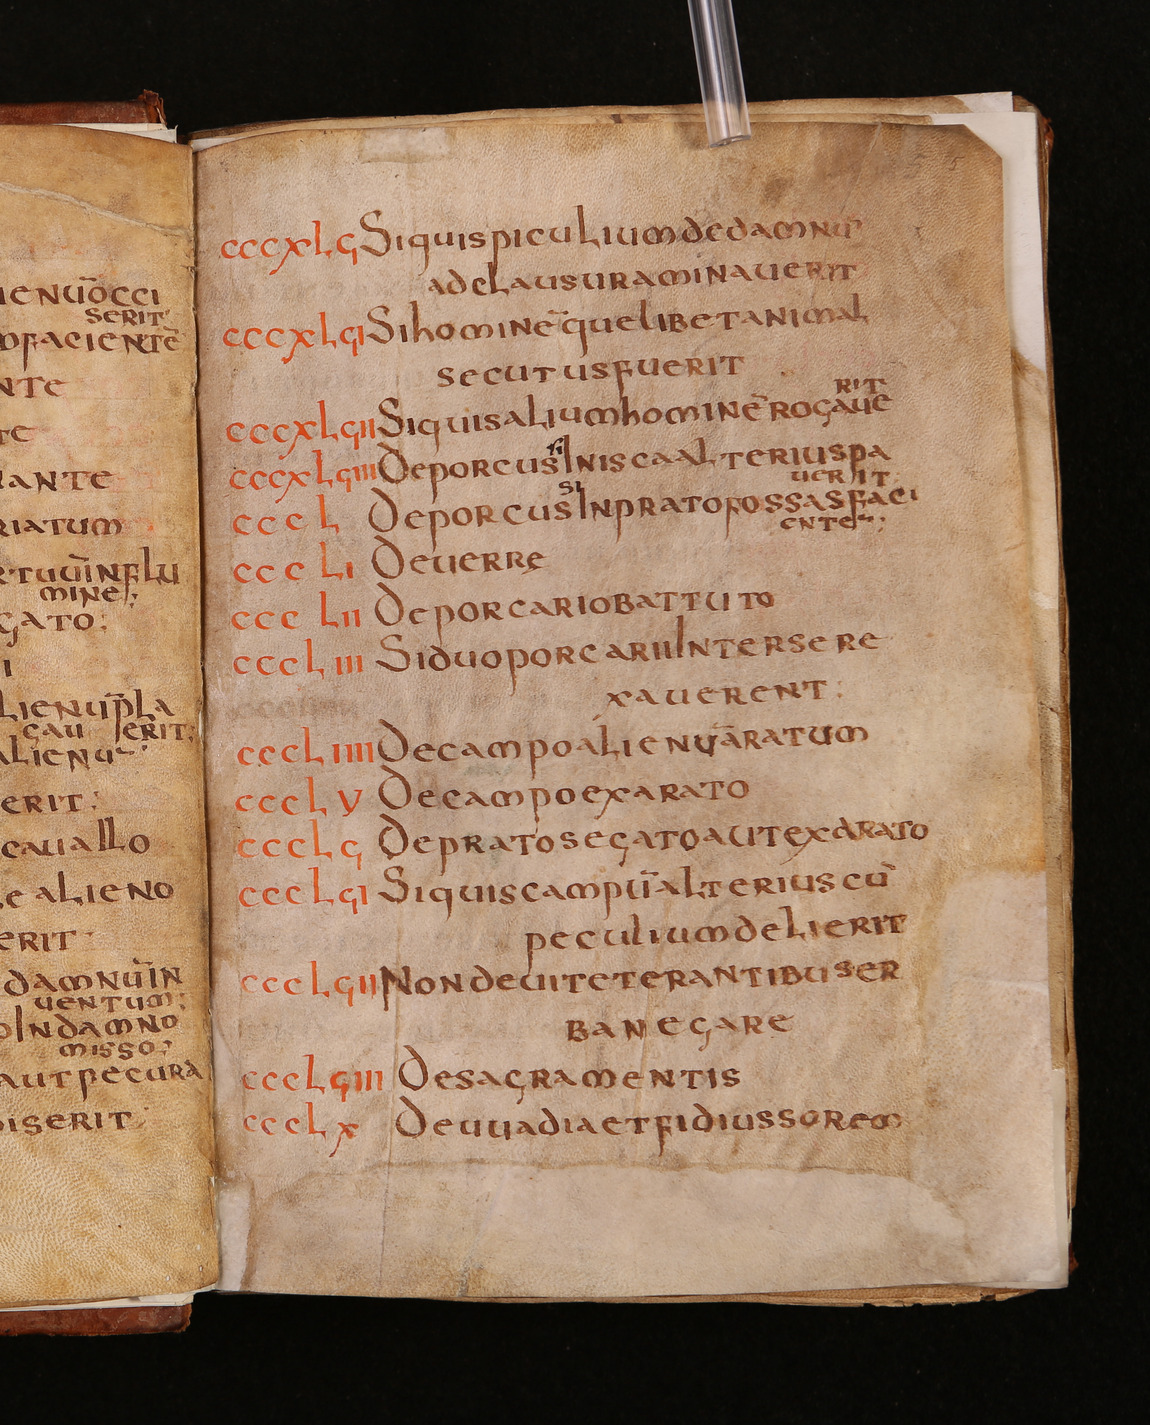 ienūocci
serit
ofacientē
nte
te
nante
riatum
rtuūinflu
mine;
gato;
i
lienūpla
gau erit;
alienū;
erit;
cauallo
e alieno
erit
damnūin
uentum;
oIndamno
misso;
autpecura
diserit
cccxlςSiquispiculiumdedamnū
adclausuraminauerit
cccxlςiSihominēquelibetanimal
secutusfuerit
cccxlςiiSiquisaliumhominērogaue
rit
cccxlςiiiDeporcussiIniscaalteriuspa
uerit
cccl DeporcussiInpratofossasfaci
ente;
cccli Deuerre
ccclii Deporcariobattuto
cccliii SiduoporcariiIntersere
xauerent;
cccliiiiDecampoalienūaratum
ccclv Decampoexarato
ccclς Depratosegatoautexarato
ccclςi Siquiscampūalteriuscū
peculiumdelierit
ccclςiiNondeuiteterantibuser
banegare
ccclςiii Desagramentis
ccclx Deuuadiaetfidiussorem